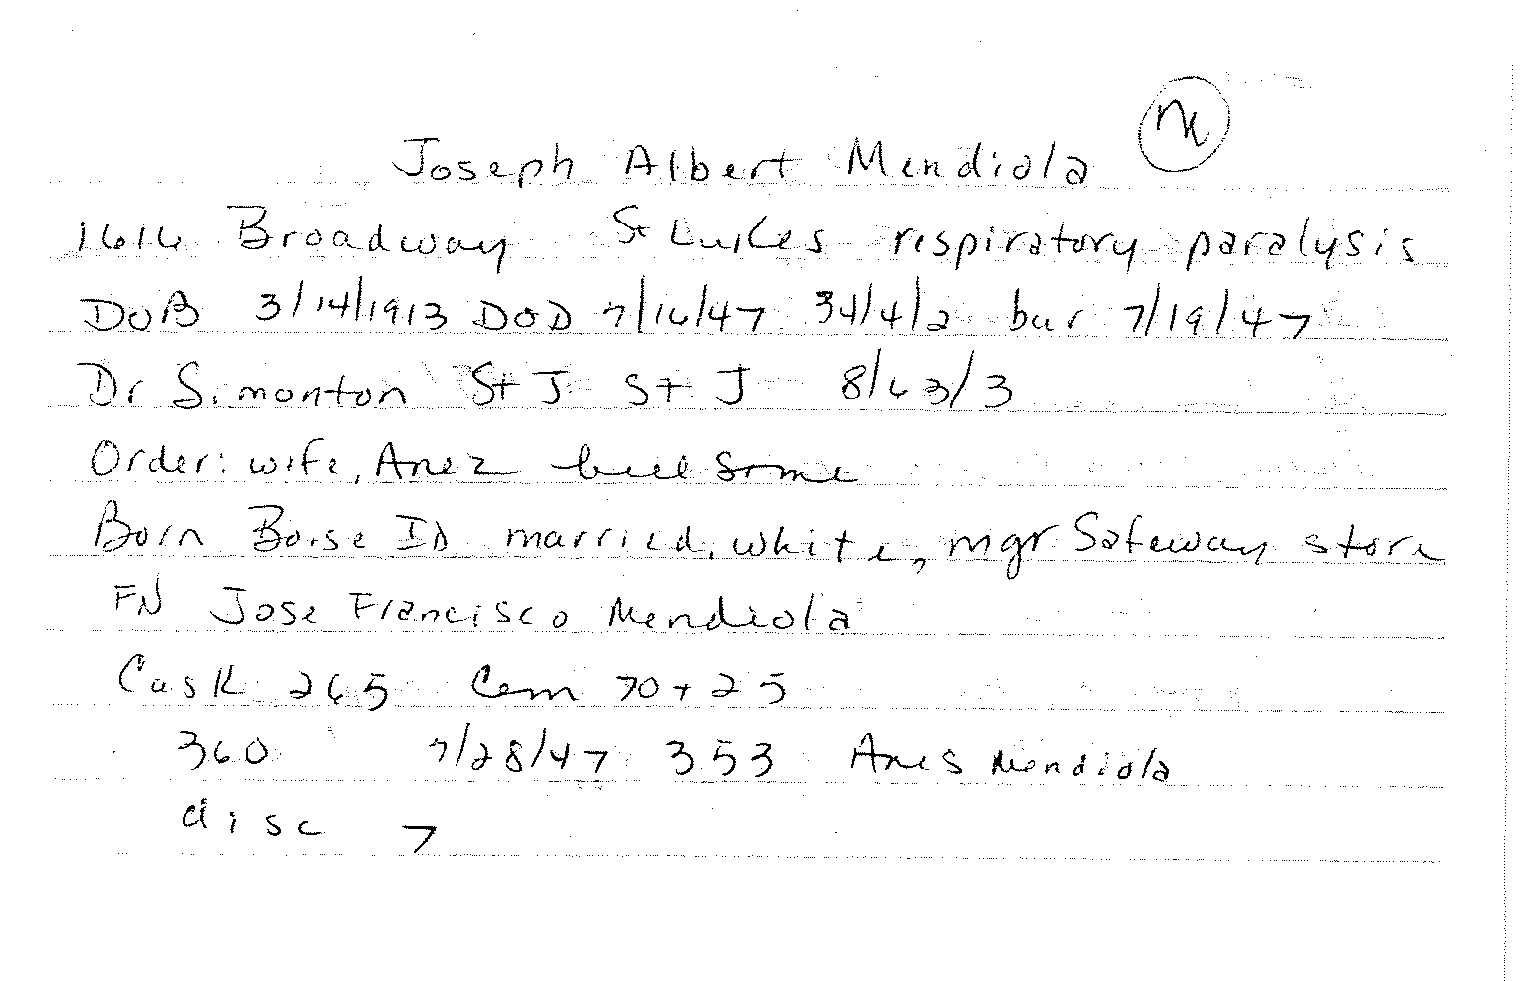 M
Joseph Albert Mendiola
1616 Broadway St Lukes respiratory paralysis
DOB 3/14/1913 DOD 7/16/47 34/4/2 bur 7/19/47
Dr Simonton St J St J 8/63/3
Order: wife, Anez bill same
Born Boise ID married, white, mgr Safeway store
FN Jose Francisco Mendiola
Cask 265 Cem 70+25
360 7/28/47 353 Anes Mendiola
disc 7